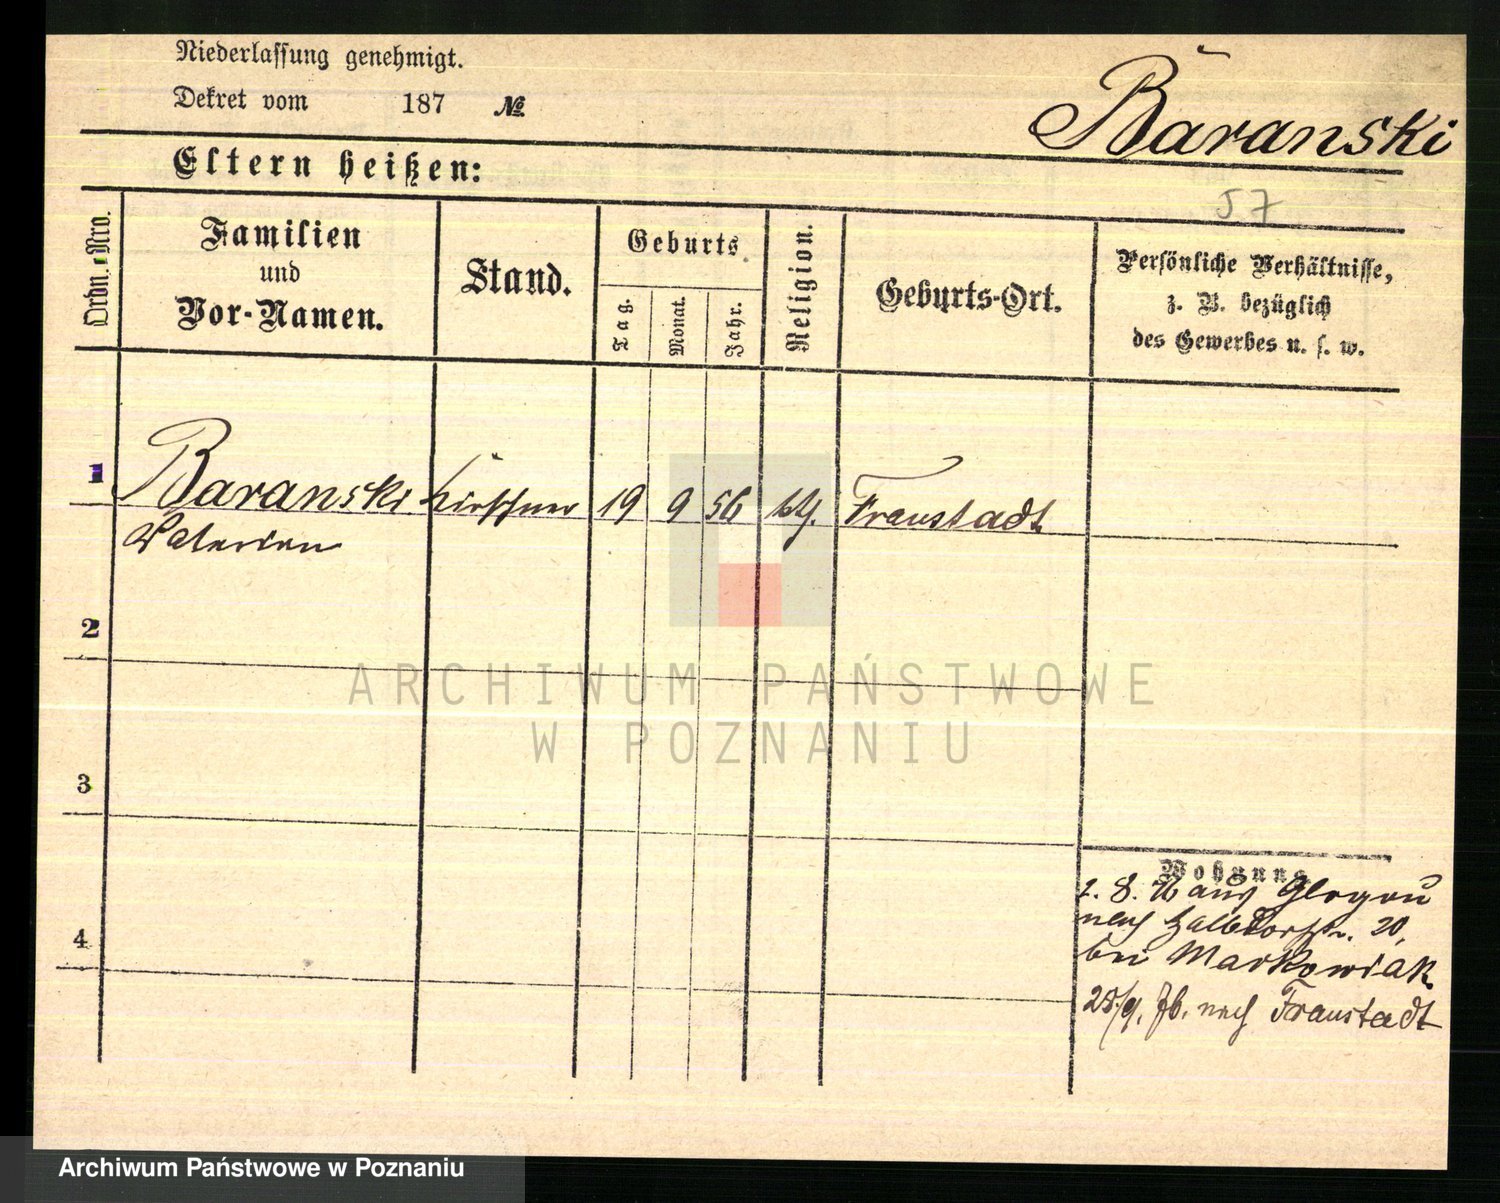 Niederlassung genehmigt.
Dekret vom 187 №
Baranski
Eltern heißen:
57
Ordn.-Nro.
Familien
und
Vor-Namen.
Stand.
Geburts
Tag.
Monat.
Jahr.
Religion.
Geburts-Ort.
Persönliche Verhältnisse,
z. B. bezüglich
des Gewerbes u. s. w.
1 Baranski Kürschner 19 9 56 kth. Fraustadt
Valerian
2
3
4
Wohnung
1. 8. 76 aus Glogau
nach Halbdorfstr. 20,
bei Markowiak
25/9. 76. nach Fraustadt
ARCHIWUM PAŃSTWOWE
W POZNANIU
Archiwum Państwowe w Poznaniu